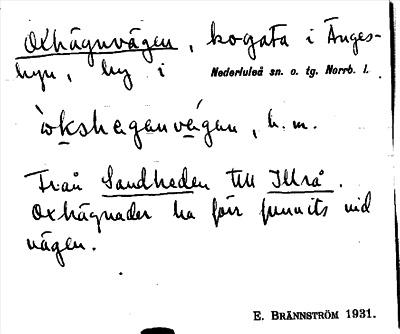 Oxhägnvägen, bogata i Änges-
byn, by i Nederluleå sn. o. tg. Norrb. l.
`ωkshεganvε´gan, b. m.
Från Sandheden till Illrå.
Oxhägnader ha förr funnits vid
vägen.
E. BRÄNNSTRÖM 1931.